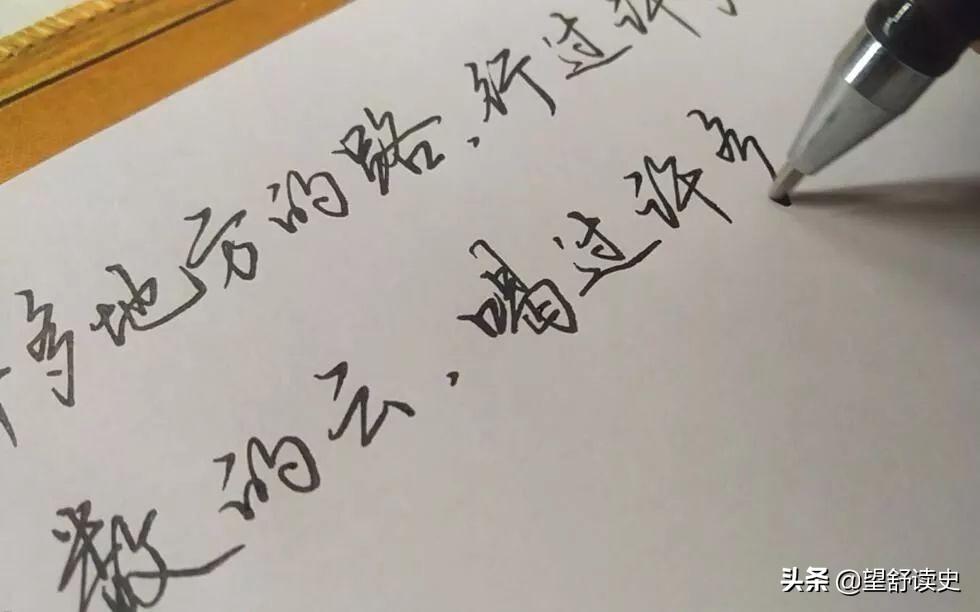 多地方的路,行过许
数的云,喝过许多
头条 @望舒读史